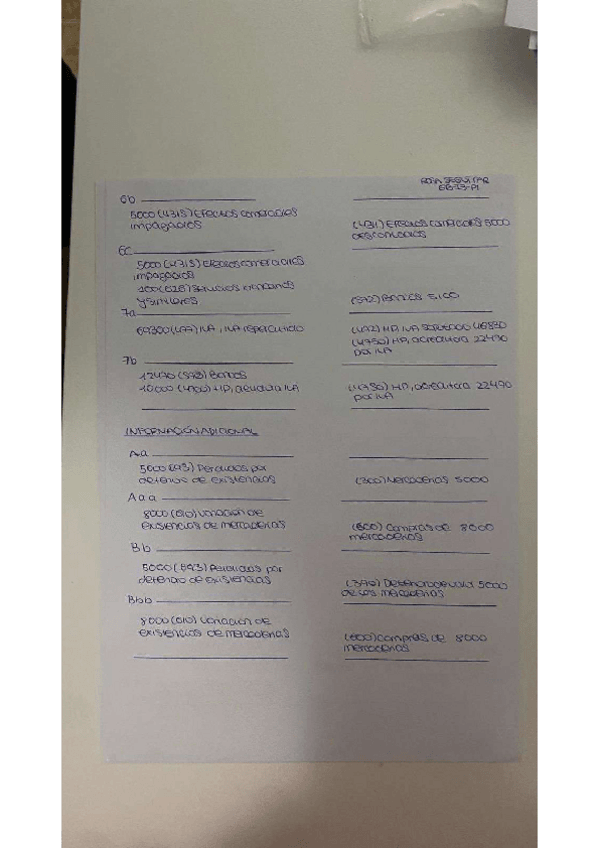 6b
5000 (4315) Efectos comerciales
impagados
(4311) Efectos comerciales 5000
descontados
6c
5000 (4315) Efectos comerciales
impagados
100 (626) Servicios bancarios
y similares
(572) Bancos 5.100
7a
69300 (477) IVA, IVA repercutido
(472) HP, IVA soportado 46830
(4750) HP, acreedora 22470
por IVA
7b
12470 (572) Bancos
10.000 (4700) HP, deudora IVA
(4750) HP, acreedora 22470
por IVA
INFORMACIÓN ADICIONAL
Aa
5000 (693) Perdidas por
deterioro de existencias
(300) Mercaderías 5000
Aaa
8000 (610) Variación de
existencias de mercaderías
(600) Compras de 8000
mercaderías
Bb
5000 (693) Perdidas por
deterioro de existencias
(390) Deterioro de valor 5000
de las mercaderías
Bbb
8000 (610) Variación de
existencias de mercaderías
(600) Compras de 8000
mercaderías